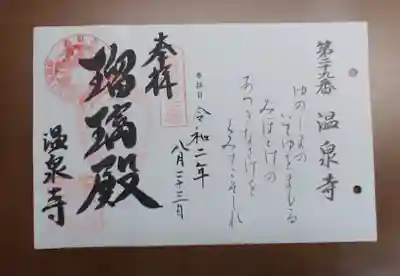 第二十九番 温泉寺
ゆのしまの
いでゆをまもる
みほとけの
あつきなさけを
くみてこそしれ
参拝日 令和二年
八月二十三日
奉拝
瑠璃殿
温泉寺